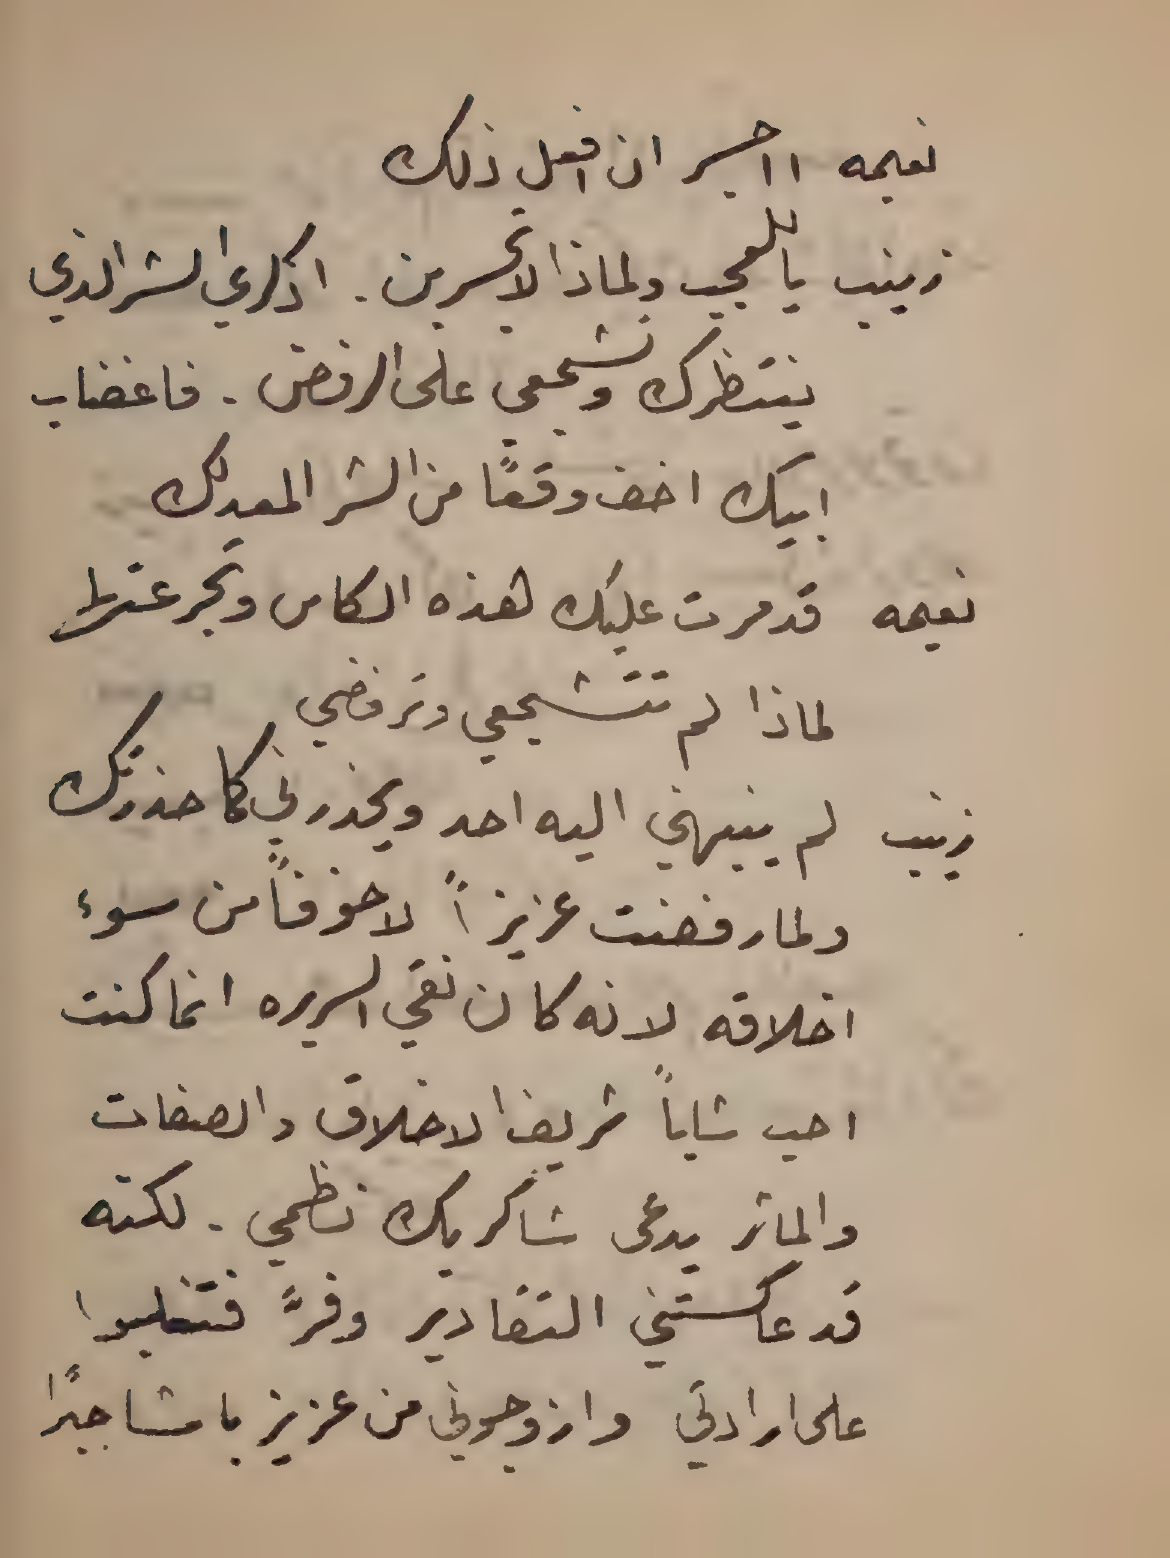 نعيمه ااجسر ان افعل ذلك
زينب ياللعجب ولماذا لا تجسرين . اذكري الشر الذي
ينتظرك وتشجعي على الرفض . فاغضاب
ابيك اخف وقعًا من الشر المعد لك
نعيمه قد مرت عليك هذه الكاس وتجرعتها
لماذا لم تتشجعي وترفضي
زينب لم ينبهني اليه احد ويحذرني كما حذرتك
ولما رفضت عزيزاً لا خوفاً من سوء
اخلاقه لانه كان نقي السريره انما كنت
احب شاباً شريف الاخلاق والصفات
والماثر يدعى شاكر بك نظمي . لكنه
قد عاكستني التقادير وفرّ فتغلبوا
على ارادتي وازوجوني من عزيز باشا جبرًا